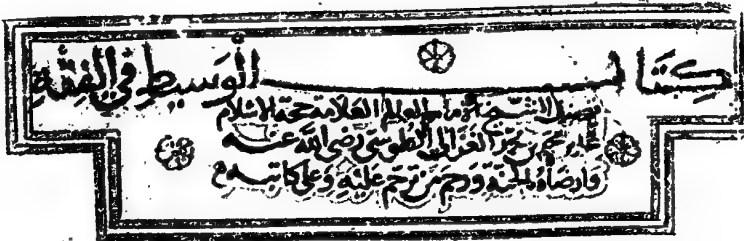 كِتَابُ الْوَسِيطِ فِي الْفِقْهِ
تصنيف الشيخ الإمام العالم العلامة حجة الاسلام
محمد بن محمد الغزالي الطوسي رضي الله عنه
وارضاه الجنة ورحم من ترحم عليه وعلى كاتبه